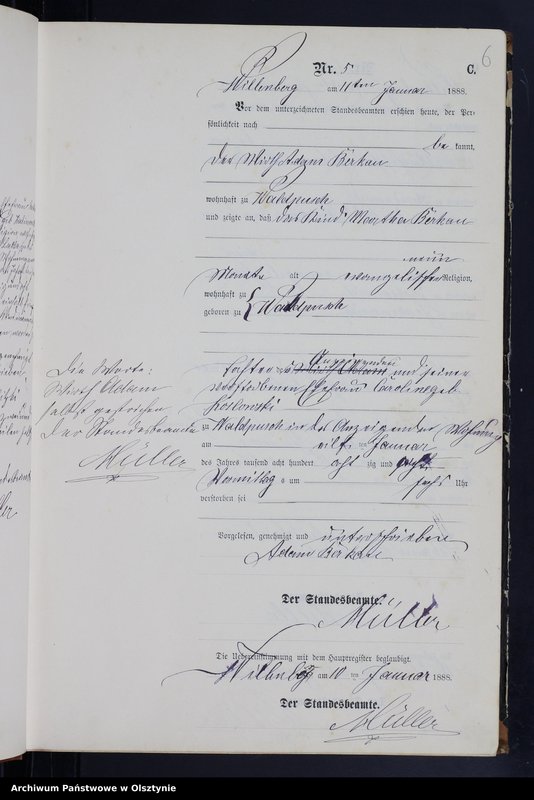 6
Nr. 5 C.
Willenberg am 11ten Januar 1888.
Vor dem unterzeichneten Standesbeamten erschien heute, der Per-
sönlichkeit nach
be kannt,
der Wirth Adam Berkau
wohnhaft zu Waldpusch
und zeigte an, daß das Kind Martha Berkau
neun
Monate alt evangelischer Religion,
wohnhaft zu
geboren zu Waldpusch
Tochter des Anzeigenden Wirth Adam und seiner
verstorbenen Ehefrau Caroline geb.
Koslowski
zu Waldpusch in des Anzeigenden Wohnung
am elften Januar
des Jahres tausend acht hundert acht zig und acht
Vormittags um sechs Uhr
verstorben sei
Vorgelesen, genehmigt und unterschrieben
Adam Berkau
Der Standesbeamte.
Müller
Die Uebereinstimmung mit dem Hauptregister beglaubigt.
Willenberg am ten Januar 1888.
Der Standesbeamte.
Müller
Die Worte:
Wirth Adam
gestrichen
Der Standesbeamte
Müller
Archiwum Państwowe w Olsztynie